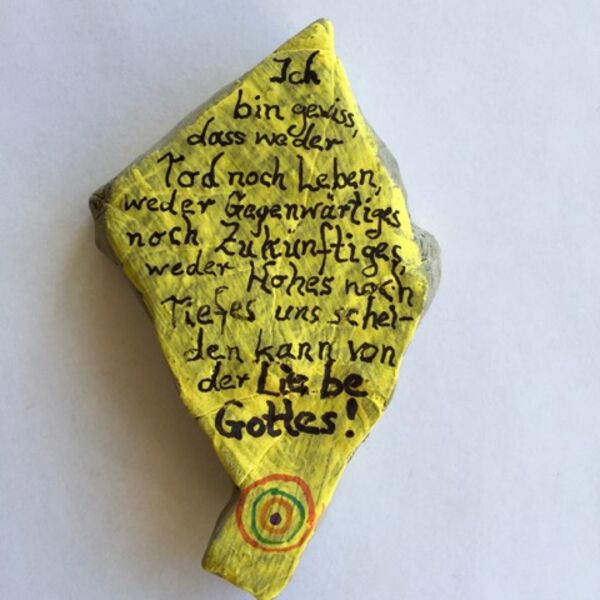 Ich
bin gewiss,
dass weder
Tod noch Leben,
weder Gegenwärtiges
noch Zukünftiges,
weder Hohes noch
Tiefes uns schei-
den kann von
der Liebe
Gottes!